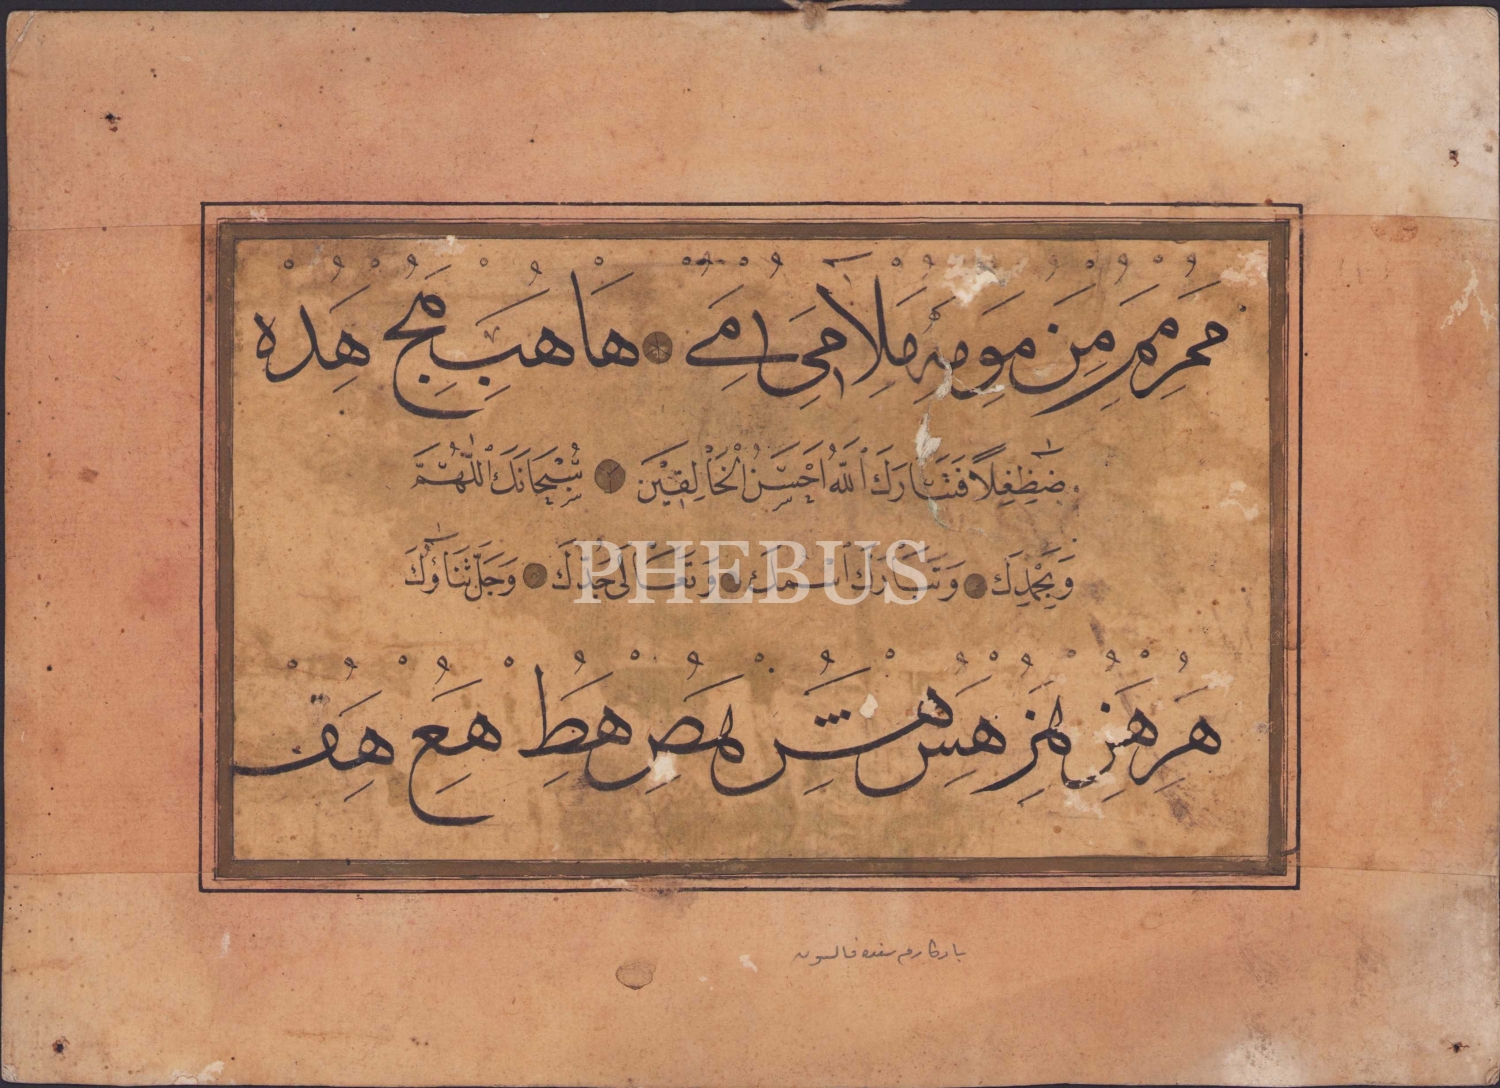 مر مم من مو مه ملا مى مے ها هب هج هد ه
ضظغلا فتبارك الله احسن الخالقين سبحانك اللهم
وبحمدك وتبارك اسمك وتعالى جدك وجل ثناؤك
PHEBUS
هر هز هس هش هص هط هع هف